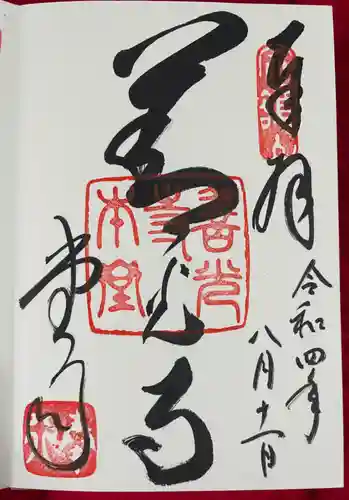 奉拝
令和四年
八月十一日
善光寺
善光寺本堂